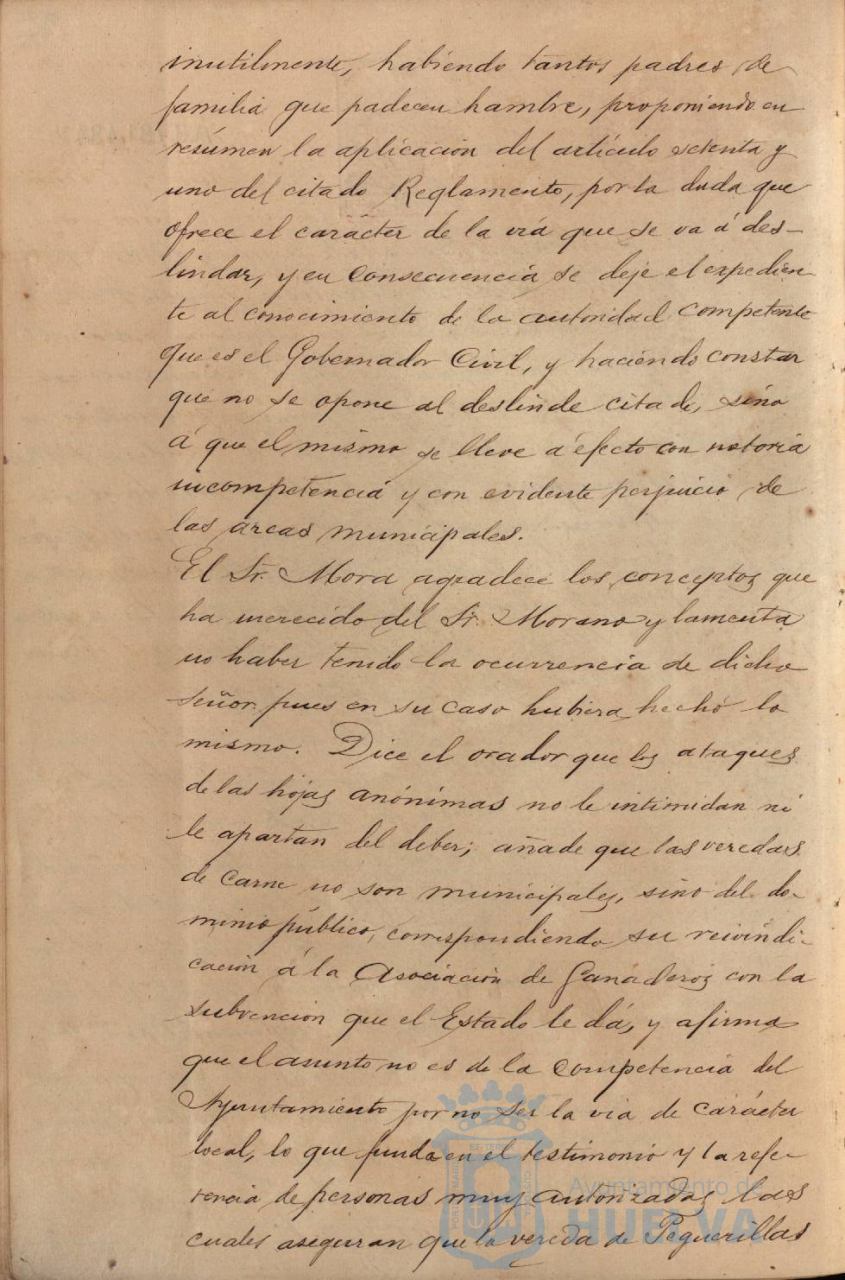 inutilmente, habiendo tantos padres de
familia que padecen hambre, proponiendo en
resúmen la aplicación del artículo setenta y
uno del citado Reglamento, por la duda que
ofrece el carácter de la vía que se va á des-
lindar, y en consecuencia se deje el expedien-
te al conocimiento de la autoridad competente
que es el Gobernador Civil, y haciendo constar
que no se opone al deslinde citado, sino
á que el mismo se lleve á efecto con notoria
incompetencia y con evidente perjuicio de
las arcas municipales.
El Sr. Mora agradece los conceptos que
ha merecido del Sr. Moreno y lamenta
no haber tenido la ocurrencia de dicho
señor pues en su caso hubiera hecho lo
mismo. Dice el orador que los ataques
de las hojas anónimas no le intimidan ni
le apartan del deber; añade que las veredas
de carne no son municipales, sino del do-
minio público, correspondiendo su reivindi-
cación á la Asociación de Ganaderos con la
subvención que el Estado le dá, y afirma
que el asunto no es de la competencia del
Ayuntamiento por no ser la via de carácter
local, lo que funda en el testimonio y la refe-
rencia de personas muy autorizadas las
cuales aseguran que la vereda de Peguerillas
Ayuntamiento de
HUELVA